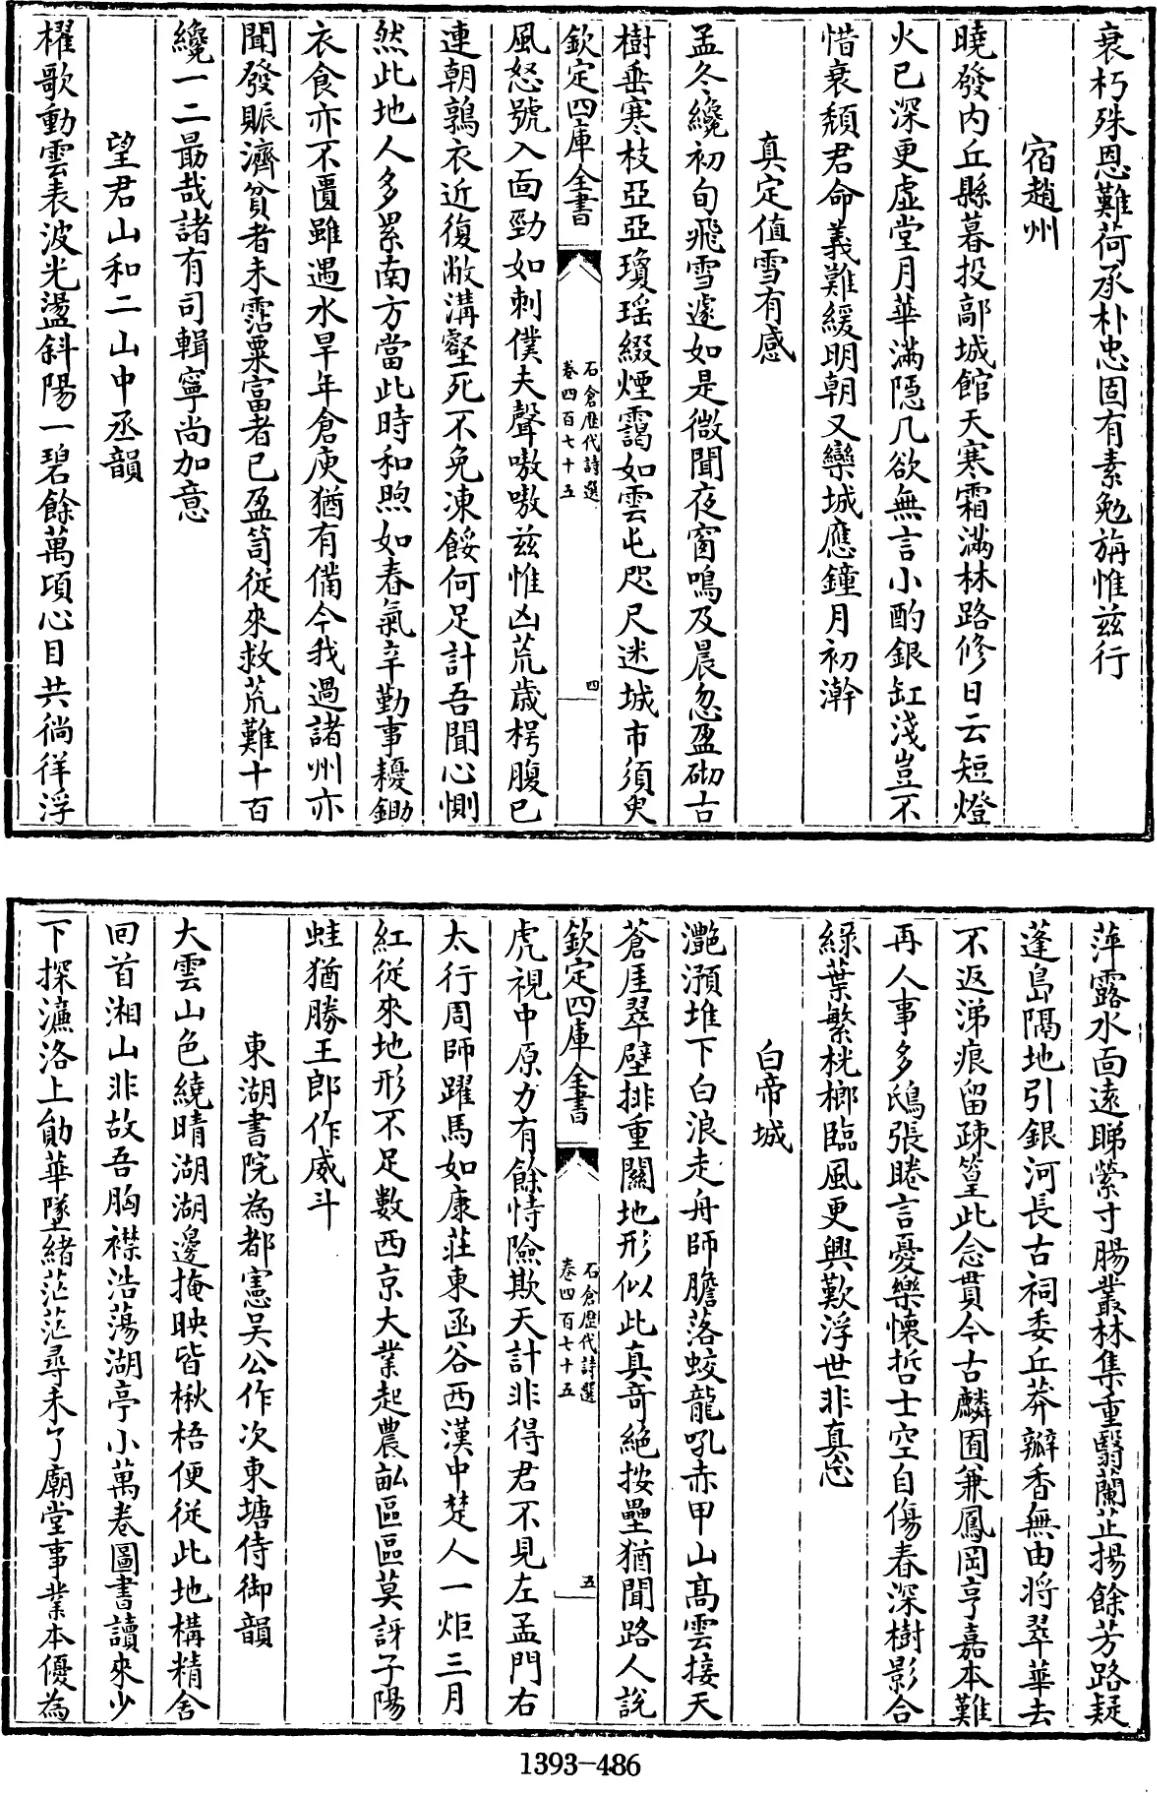 衰朽殊恩難荷承朴忠固有素勉旃惟兹行
宿趙州
曉發内丘縣暮投鄗城館天寒霜滿林路修日云短燈
火已深更虚堂月華滿隠几欲無言小酌銀缸淺豈不
惜衰頽君命義難緩明朝又欒城應鐘月初澣
真定值雪有感
孟冬纔初旬飛雪遽如是微聞夜窗鳴及晨忽盈砌古
樹垂寒枝亞亞瓊瑶綴煙靄如雲屯咫尺迷城市須臾
欽定四庫全書
石倉歷代詩選
卷四百七十五
四
風怒號入面勁如刺僕夫聲嗷嗷兹惟凶荒歳枵腹已
連朝鶉衣近復敝溝壑死不免凍餒何足計吾聞心惻
然此地人多累南方當此時和煦如春氣辛勤事耰鋤
衣食亦不匱雖遇水旱年倉庾猶有備今我過諸州亦
聞發賑濟貧者未霑粟富者已盈笥從來救荒難十百
纔一二最哉諸有司輯寧尚加意
望君山和二山中丞韻
櫂歌動雲表波光盪斜陽一碧餘萬頃心目共徜徉浮
萍露水面遠睇縈寸腸叢林集重翳蘭芷揚餘芳路疑
蓬島隔地引銀河長古祠委丘莽瓣香無由将翠華去
不返涕痕留疎篁此念貫今古麟囿兼鳳岡亨嘉本難
再人事多鴟張睠言憂樂懐哲士空自傷春深樹影合
緑葉繁桄榔臨風更興歎浮世非真忘
白帝城
灔澦堆下白浪走舟師膽落蛟龍吼赤甲山髙雲接天
蒼厓翠壁排重關地形似此真竒絶按壘猶聞路人説
欽定四庫全書
石倉歷代詩選
卷四百七十五
五
虎視中原力有餘恃險欺天計非得君不見左孟門右
太行周師躍馬如康莊東函谷西漢中楚人一炬三月
紅從來地形不足數西京大業起農畝區區莫訝子陽
蛙猶勝王郎作威斗
東湖書院為都憲吴公作次東塘侍御韻
大雲山色繞晴湖湖邊掩映皆楸梧便從此地構精舍
回首湘山非故吾胸襟浩蕩湖亭小萬卷圖書讀來少
下探濂洛上勛華墜緒茫茫尋未了廟堂事業本優為
1393-486